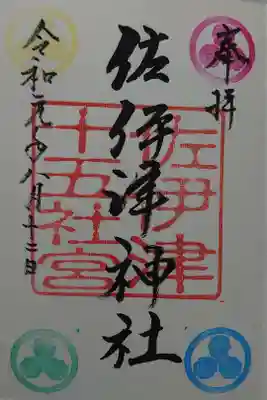 奉拝
佐伊津神社
令和元年八月十二日
佐伊津
十五社宮